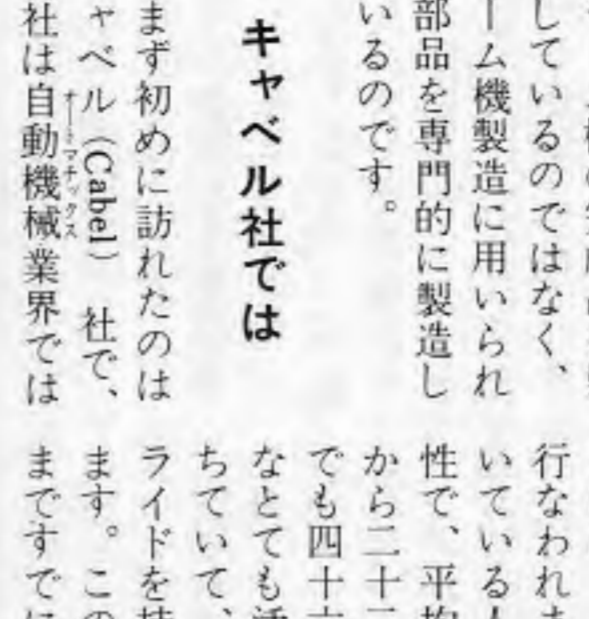 しているのではなく、
ーム機製造に用いられ
部品を専門的に製造し
いるのです。
キャベル社では
まず初めに訪れたのは
ャベル（Cabel）社で、
社は自動機械業界では
オートマチックス
行なわれ
いている
性で、平均
から二十二
でも四十
なとても
ちていて、
ライドを
ます。この
まですでに